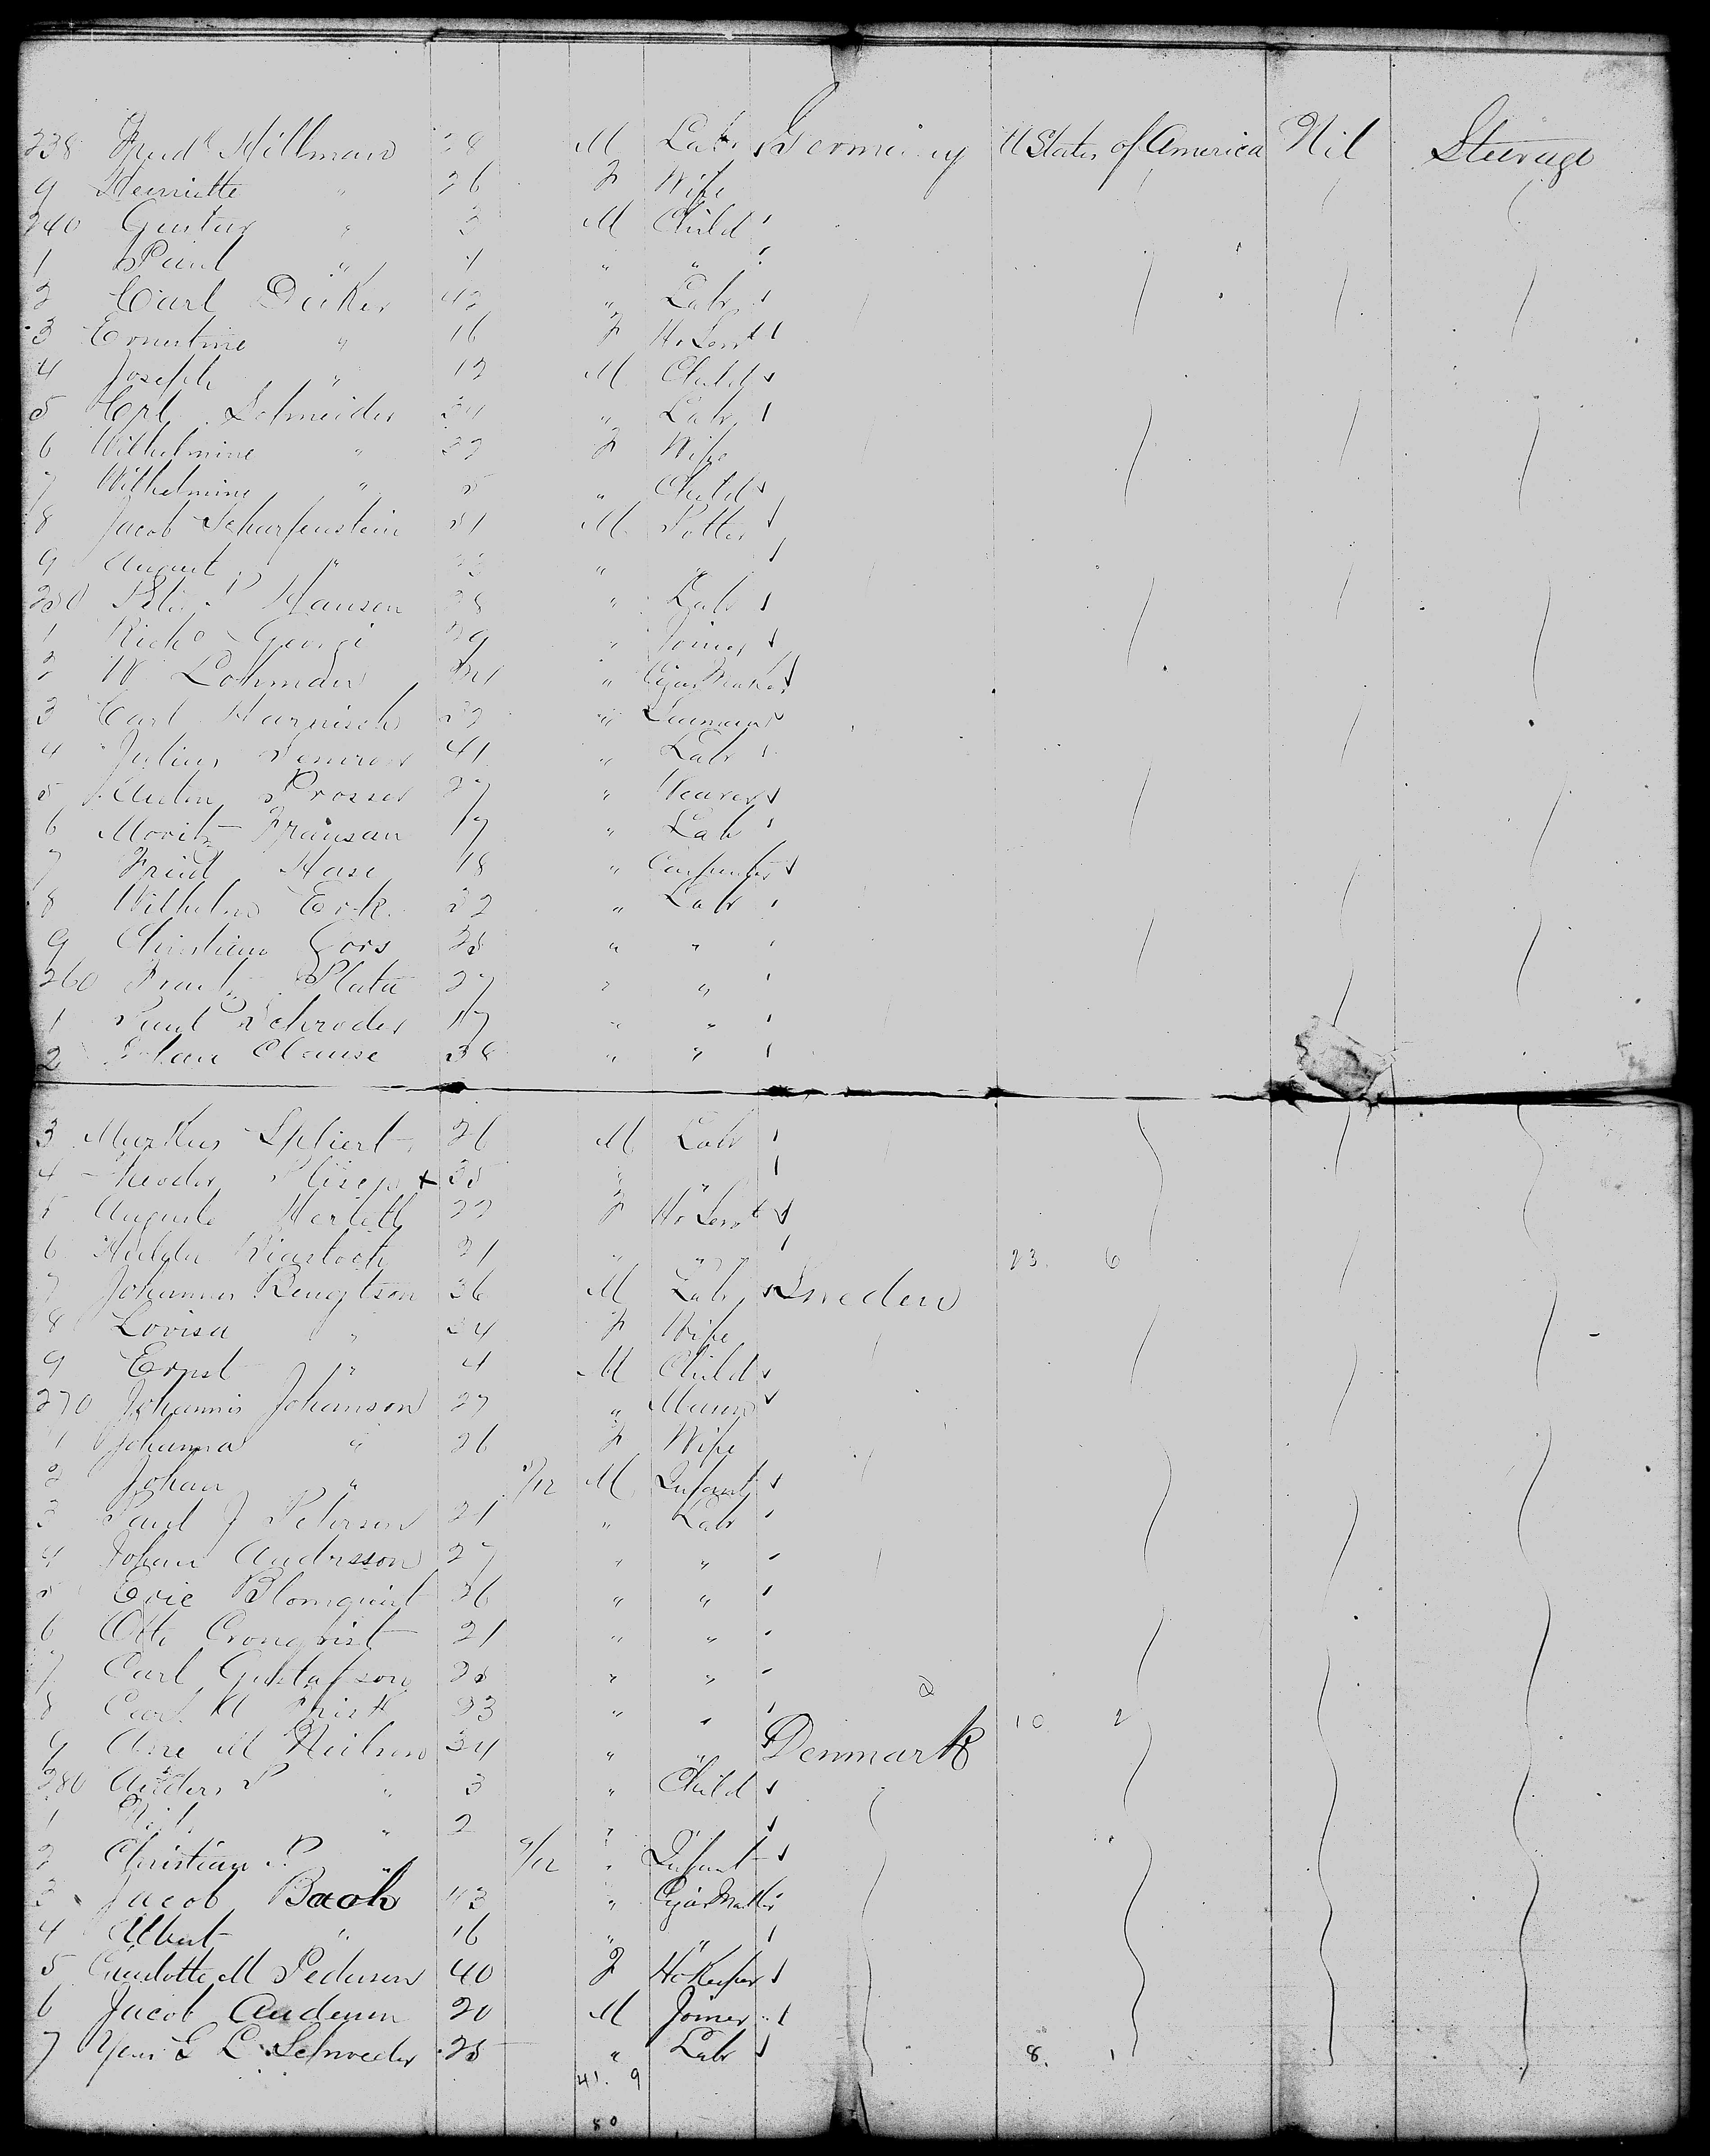 238 Fredk Hillman 28 M Labr Germany U States of America Nil Steerage
9 Henriette " 26 F Wife
240 Gustav " 3 M Child
1 Paul " 1 " "
2 Carl Decker 42 " Labr
3 Ernestine " 16 F Ho Servt
4 Joseph " 12 M Child
5 Schneider 34 " Labr
6 Wilhelmine " 32 F Wife
7 Wilhelmine " 5 " Child
8 Jacob Scharfenstein 31 M Potter
9 August " " "
250 P Hansen 28 " Labr
1 Richd Georgi 29 " Joiner
2 W Lohman " Cigar Maker
3 Carl Harnisch 32 " Seaman
4 Julius 41 " Labr
5 Anton Prosser 27 " Weaver
6 Moritz Fransan 17 " Labr
7 Fried Hase 18 " Carpenter
8 Wilhelm Eck 32 " Labr
9 Christian Gors 25 " "
260 Plata 27 " "
1 Paul Schroder 17 " "
2 Johan Clause 38 " "
3 Markus 26 M Labr
4 Theodor x 35 " "
5 Auguste Herlett 22 F Ho Servt
6 Hulda 21 " " 23. 6
7 Johannes Bengtson 36 M Labr Sweden
8 Lovisa " 34 F Wife
9 Ernst " 4 M Child
270 Johannis Johanson 27 " Mason
1 Johanna " 26 F Wife
2 Johan " /12 M Infant
3 Paul J Peterson 21 " Labr
4 Johan Andersson 27 " "
5 Eric Blomquist 36 " "
6 Otto Cronqvist 21 " "
7 Carl Gustafson 25 " "
8 Carl A 23 " " 10 2
9 Ane M Neilsen 34 " " Denmark
280 Anders P " 3 " Child
1 " 2 " "
2 Christian P. " 9/12 " Infant
3 Jacob Bach 43 " Cigar Maker
4 Albert " 16 " "
5 Charlotte M Pedersen 40 F Ho Keeper
6 Jacob Andersen 20 M Joiner
7 L Schroeder 25 " Labr 8. 1
41. 9
50